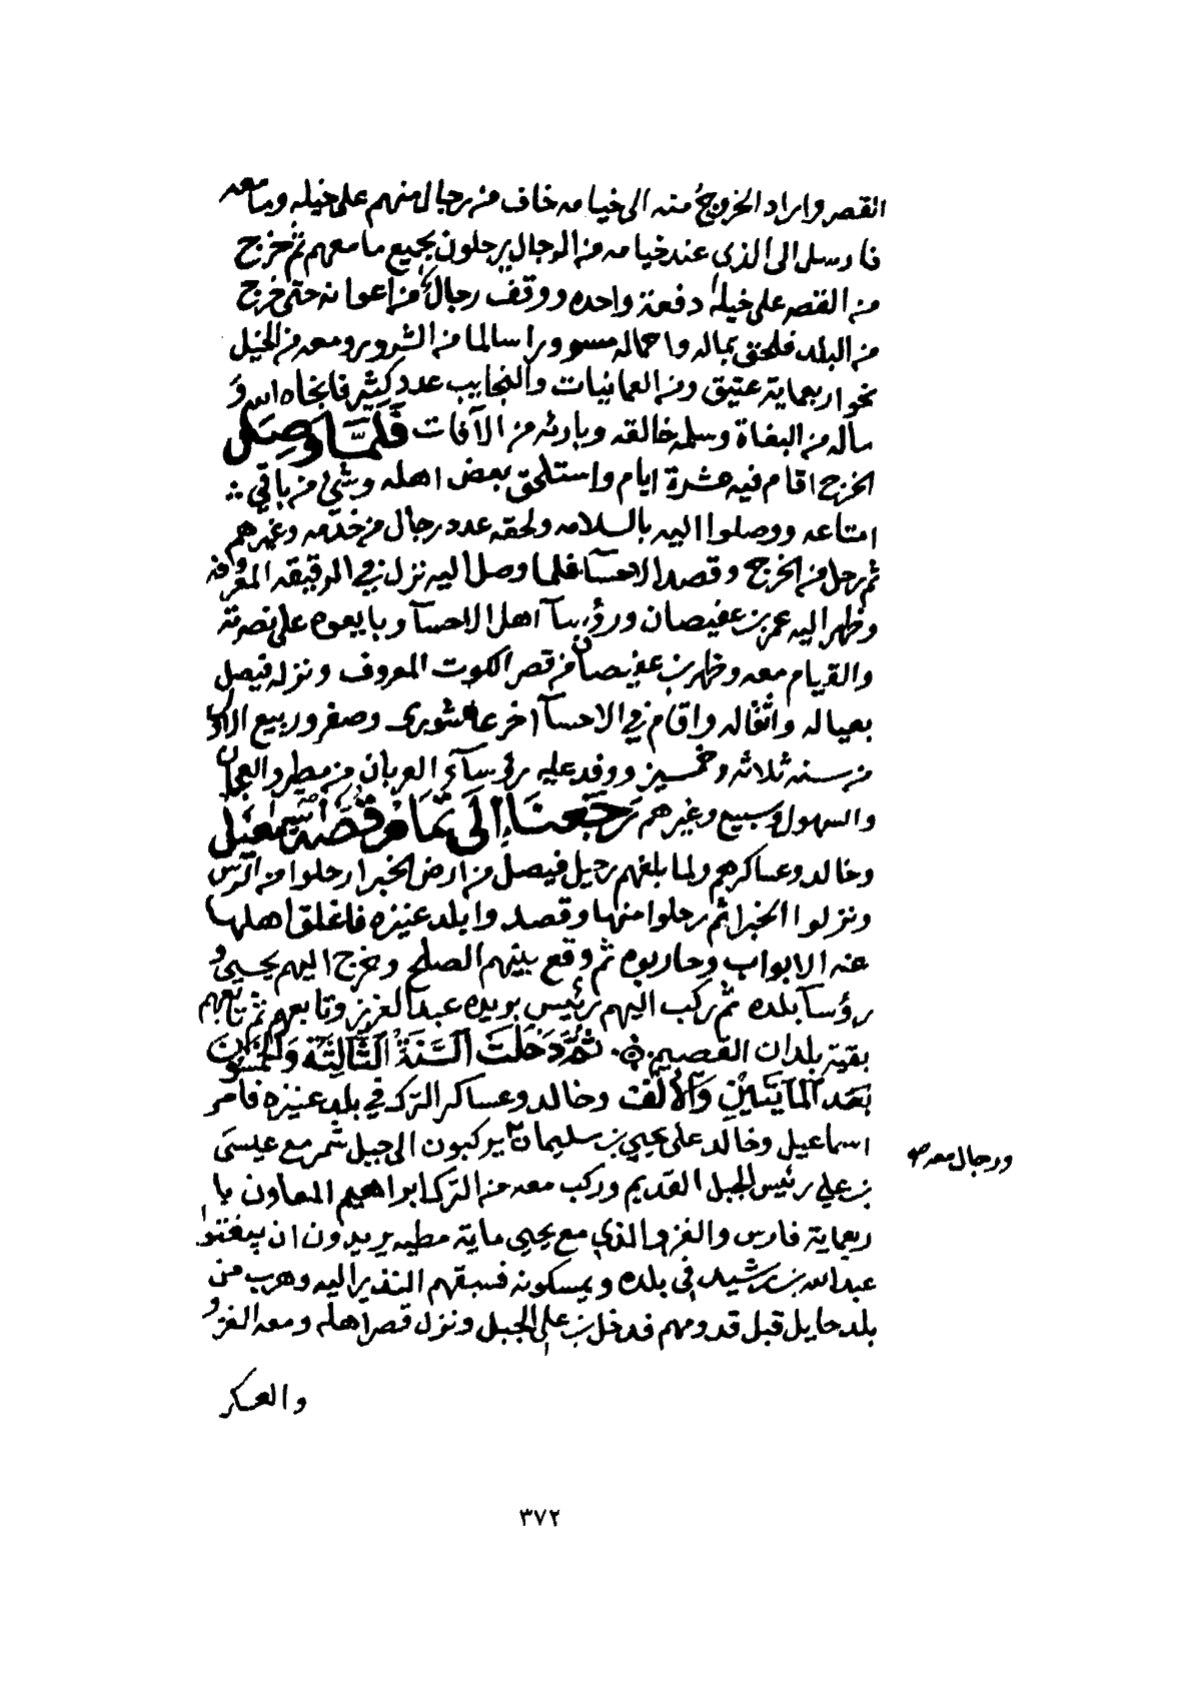 القصر واراد الخروج منه الى خيامه خاف من رجال منهم على خيله وما معه
فارسل الى الذى عند خيامه من الرجال يرحلون بجميع ما معهم ثم خرج
من القصر على خيله دفعة واحده ووقف رجال من اعوانه حتى خرج
من البلد فلحق بماله واحماله مسرورا سالما من الشرور ومعه من الخيل
نحو اربعماية عتيق ومن العمانيات والنجايب عدد كثير فانجاه الله و
ماله من البغاة وسلمه خالقه وبارئه من الآفات فلما وصل
الخرج اقام فيه عشرة ايام واستلحق بعض اهله وشئ من باقي
امتاعه ووصلوا اليه بالسلامه ولحقه عدد رجال من خدمه وغيرهم
ثم رحل من الخرج وقصد الاحسآ فلما وصل اليه نزل في الرقيقه المعروفه
وظهر اليه عمر بن عفيصان ورؤسآ اهل الاحسآ وبايعوه على نصرته
والقيام معه وظهر بن عفيصان من قصر الكوت المعروف ونزله فيصل
بعياله واثقاله واقام في الاحسآ اخر عاشورى وصفر وربيع الاول
من سنة ثلاثه وخمسين ووفد عليه رؤسآء العربان من مطير والعجمان
والسهول وسبيع وغيرهم رجعنا إلى تمام قصة اسمعيل
وخالد وعساكرهم ولما بلغهم رحيل فيصل من ارض الخبرا رحلوا من الرس
ونزلوا الخبرا ثم رحلوا منها وقصدوا بلد عنيزه فاغلق اهلها
عنه الابواب وحاربوه ثم وقع بينهم الصلح وخرج اليهم يحيى و
رؤسآ بلده ثم ركب اليهم رئيس بريده عبدالعزيز وتابعهم ثم تابعهم
بقية بلدان القصيم ثم دخلت السنة الثالثة والخمسون
بعد المآيتين والألف وخالد وعساكر الترك في بلد عنيزه فامر
اسماعيل وخالد على يحيى بن سليمان يركبون الى جبل شمر مع عيسى
ورجال معه صح
بن علي رئيس الجبل القديم وركب معه من الترك ابراهيم المعاون با
ربعماية فارس والغزو الذي مع يحيى ماية مطيه يريدون ان يبغتوا
عبدالله بن رشيد في بلده ويمسكونه فسبقهم النذير اليه وهرب من
بلد حايل قبل قدومهم فدخل بن على الجبل ونزل قصر اهله ومعه الغزو
والعسكر
٣٧٢